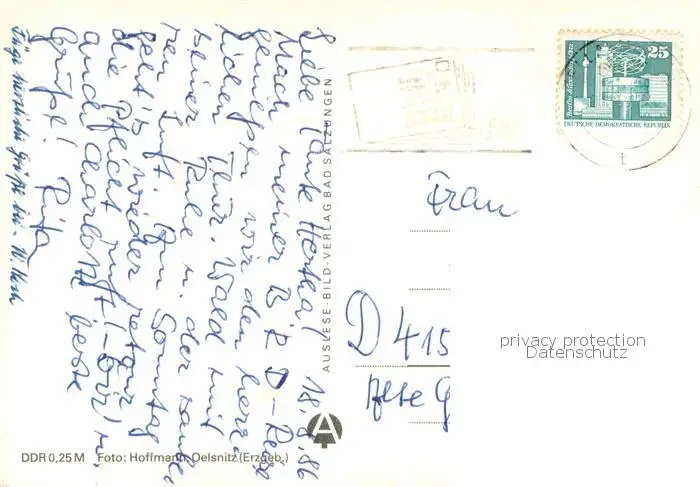 Liebe Tante Hertha! 18.8.86
Nach meiner BRD-Reise
genießen wir den herr-
lichen Thür. Wald mit
seiner Ruhe u. der saube-
ren Luft. Am Sonntag
geht's wieder retour,
die Pflicht ruft! –
auch Charlotte beste
Grüße! Rita
Füge herzliche Grüße bei
AUSLESE-BILD-VERLAG BAD SALZUNGEN
DDR 0,25 M Foto: Hoffmann, Oelsnitz (Erzgeb.)
A
Berlin-Alexanderplatz
25
DEUTSCHE DEMOKRATISCHE REPUBLIK
t
Frau
D 415
Alte G
privacy protection
Datenschutz